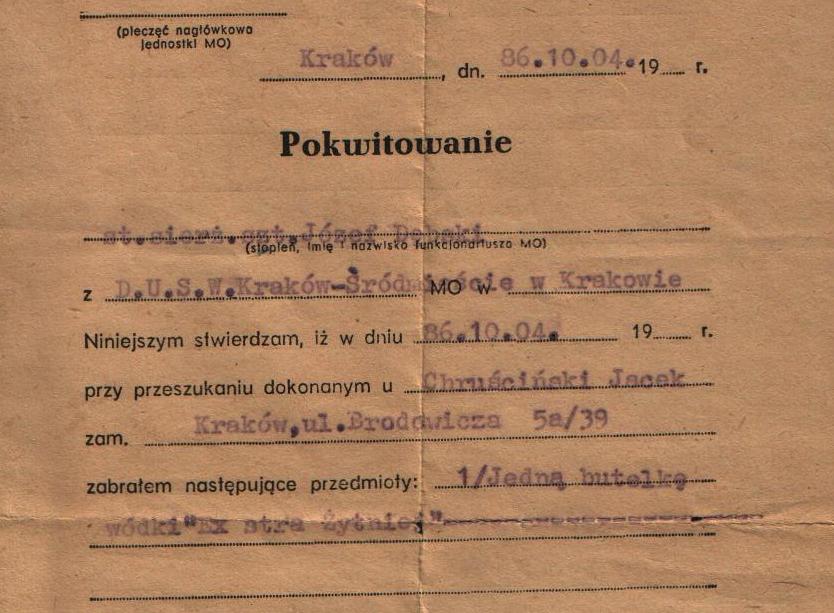 (pieczęć nagłówkowa
jednostki MO)
Kraków, dn. 86.10.04. 19 r.
Pokwitowanie
st.sierż.szt.Józef Dębski
(stopień, imię i nazwisko funkcjonariusza MO)
z D.U.S.W.Kraków-Śródmieście MO w w Krakowie
Niniejszym stwierdzam, iż w dniu 86.10.04. 19 r.
przy przeszukaniu dokonanym u Chruściński Jacek
zam. Kraków,ul.Brodowicza 5a/39
zabrałem następujące przedmioty: 1/Jedną butelkę
wódki"Ex stra Żytniej"